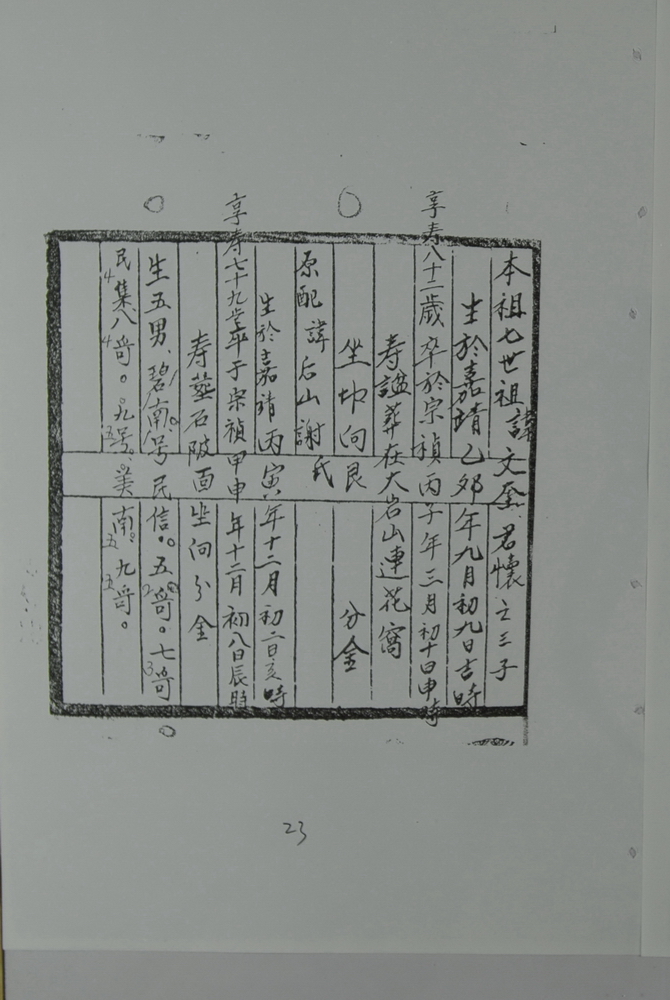 本祖七世祖諱文奎君懷之三子
生於嘉靖乙卯年九月初九日吉時
享寿八十二歲卒於宗禎丙子年三月初十日申時
寿謚葬在大岩山連花窩
坐坤向艮 分金
原配諱后山謝氏
生於嘉靖丙寅年十二月初二日亥時
享寿七十九岁卒于宗禎甲申年十二月初八日辰時
寿葬石陂面坐向分金
生五男碧南号民信。五哿。七哿
民集八哿。九号。美南。九哿。
23